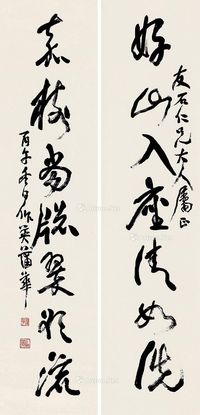 好山入座清如洗
友石仁兄大人属正
嘉树当窗翠欲流
丙午冬夕作英蒲华